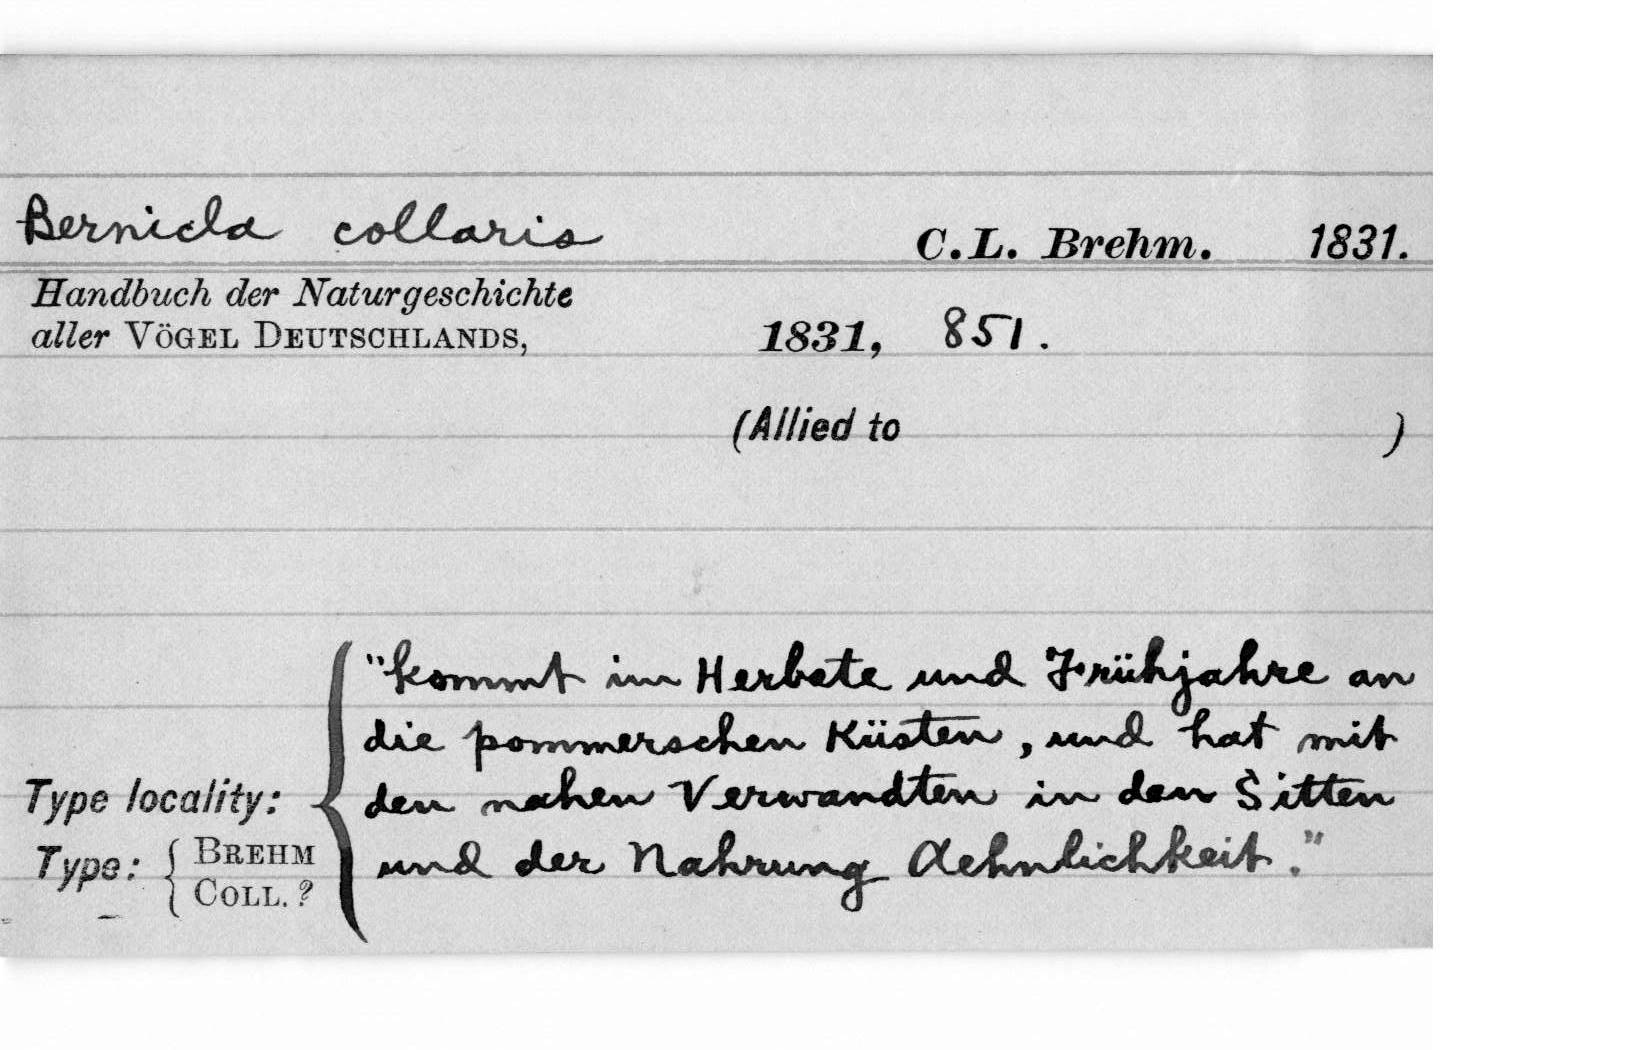 Bernicla collaris C.L. Brehm. 1831.
Handbuch der Naturgeschichte
aller VÖGEL DEUTSCHLANDS, 1831, 851.
(Allied to )
"kommt im Herbste und Frühjahre an
die pommerschen Küsten, und hat mit
den nahen Verwandten in den Sitten
und der Nahrung Aehnlichkeit."
Type locality:
Type: { BREHM
COLL. ?